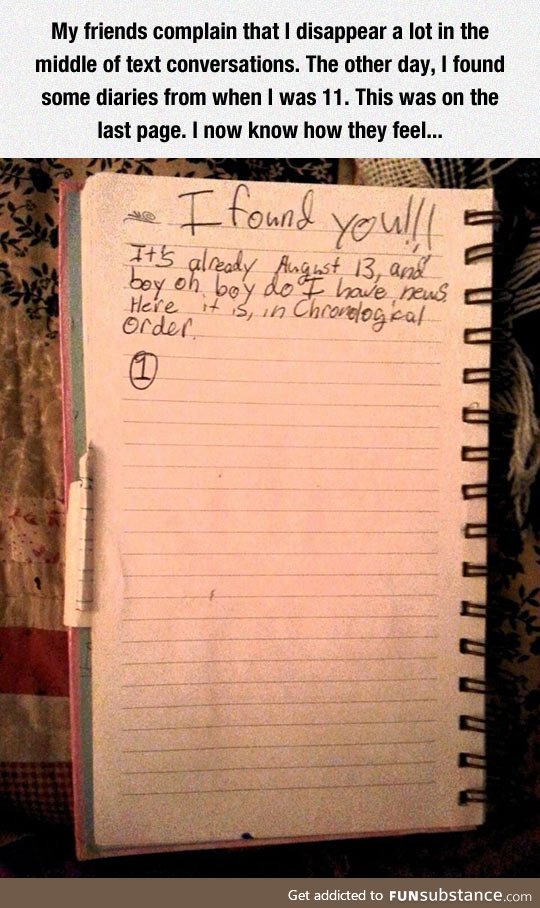 My friends complain that I disappear a lot in the
middle of text conversations. The other day, I found
some diaries from when I was 11. This was on the
last page. I now know how they feel...
I found you!!!
It's already August 13, and
boy oh boy do I have news.
Here it is, in Chronological
order.
1
Get addicted to FUNsubstance.com